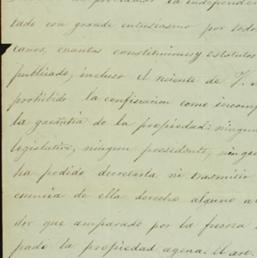 de proclamar la independen
tado con grande entusiasmo por todo
canos, cuantas constituciones y estatutos
publicado, incluso el reciente de J.
prohibido la confiscacion como incomp
la garantia de la propiedad: ningun
legislativo, ningun presidente, ningu
ha podido decretarla ni trasmitir
cuencia de ella derecho alguno a
dor que amparado por la fuerza
pado la propiedad agena. El art.